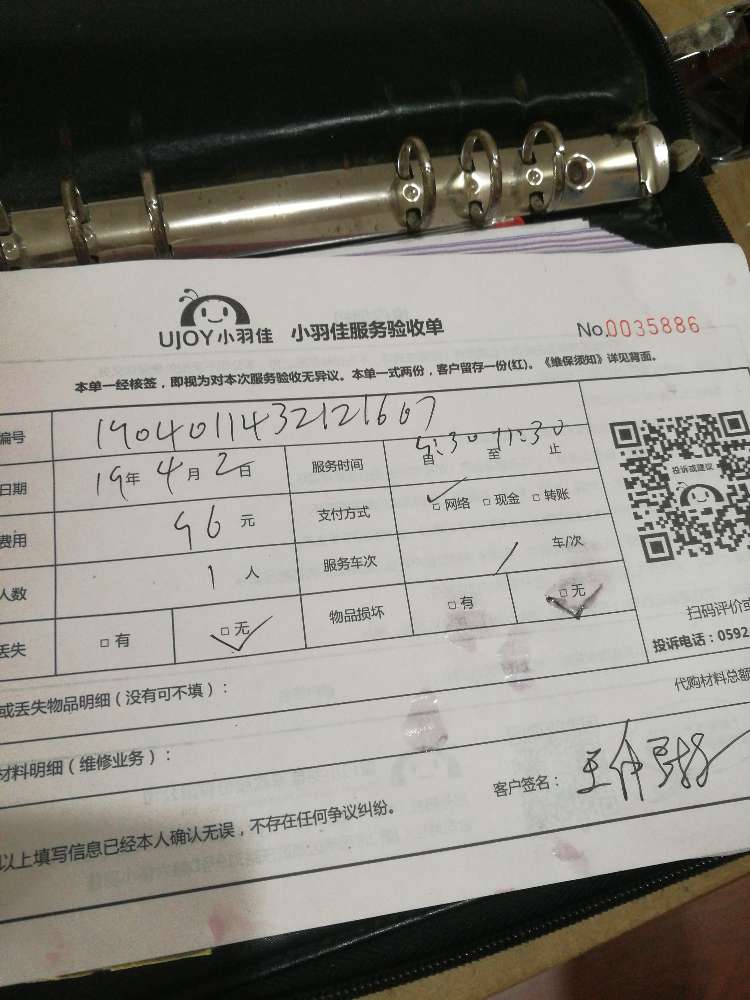 UJOY小羽佳 小羽佳服务验收单 No.0035886
本单一经核签，即视为对本次服务验收无异议。本单一式两份，客户留存一份(红)。《维保须知》详见背面。
编号 1904011432121607
日期 19年4月2日 服务时间 自9:30至11:30止
费用 96元 支付方式 ✓□网络 □现金 □转账
人数 1人 服务车次 / 车/次
丢失 □有 □无✓ 物品损坏 □有 □无✓
投诉或建议
扫码评价或
投诉电话：0592
或丢失物品明细（没有可不填）： 代购材料总额
材料明细（维修业务）：
客户签名：
以上填写信息已经本人确认无误，不存在任何争议纠纷。